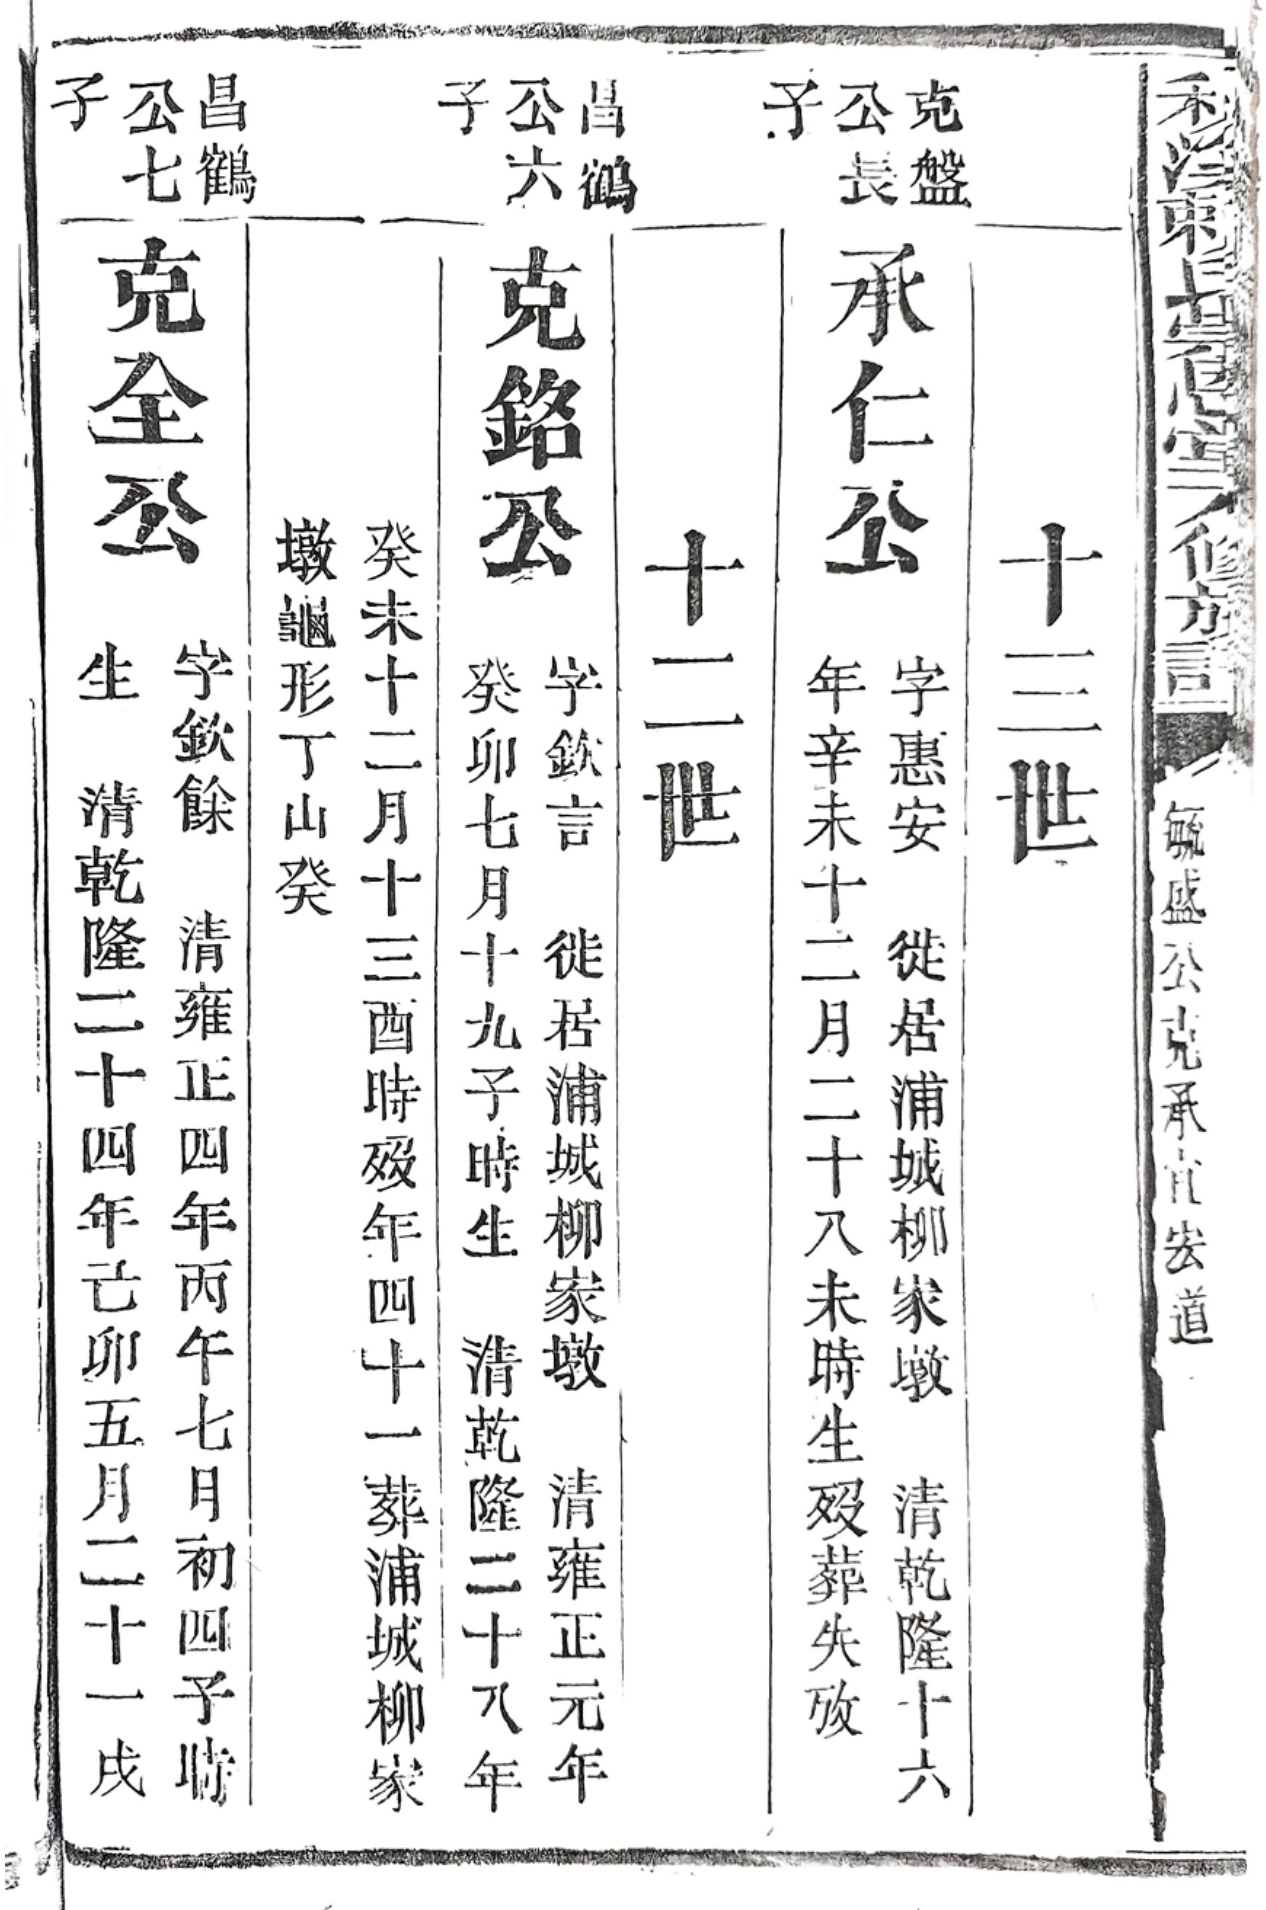 毓盛公克承宜宏道
十三世
克盤
公長
子
承仁公
字惠安 徙居浦城柳家墩 清乾隆十六
年辛未十二月二十八未時生歿葬失攷
十二世
昌鶴
公六
子
克銘公
字欽言 徙居浦城柳家墩 清雍正元年
癸卯七月十九子時生 清乾隆二十八年
癸未十二月十三酉時歿年四十一葬浦城柳家
墩龜形丁山癸
昌鶴
公七
子
克全公
字欽餘 清雍正四年丙午七月初四子時
生 清乾隆二十四年己卯五月二十一戌